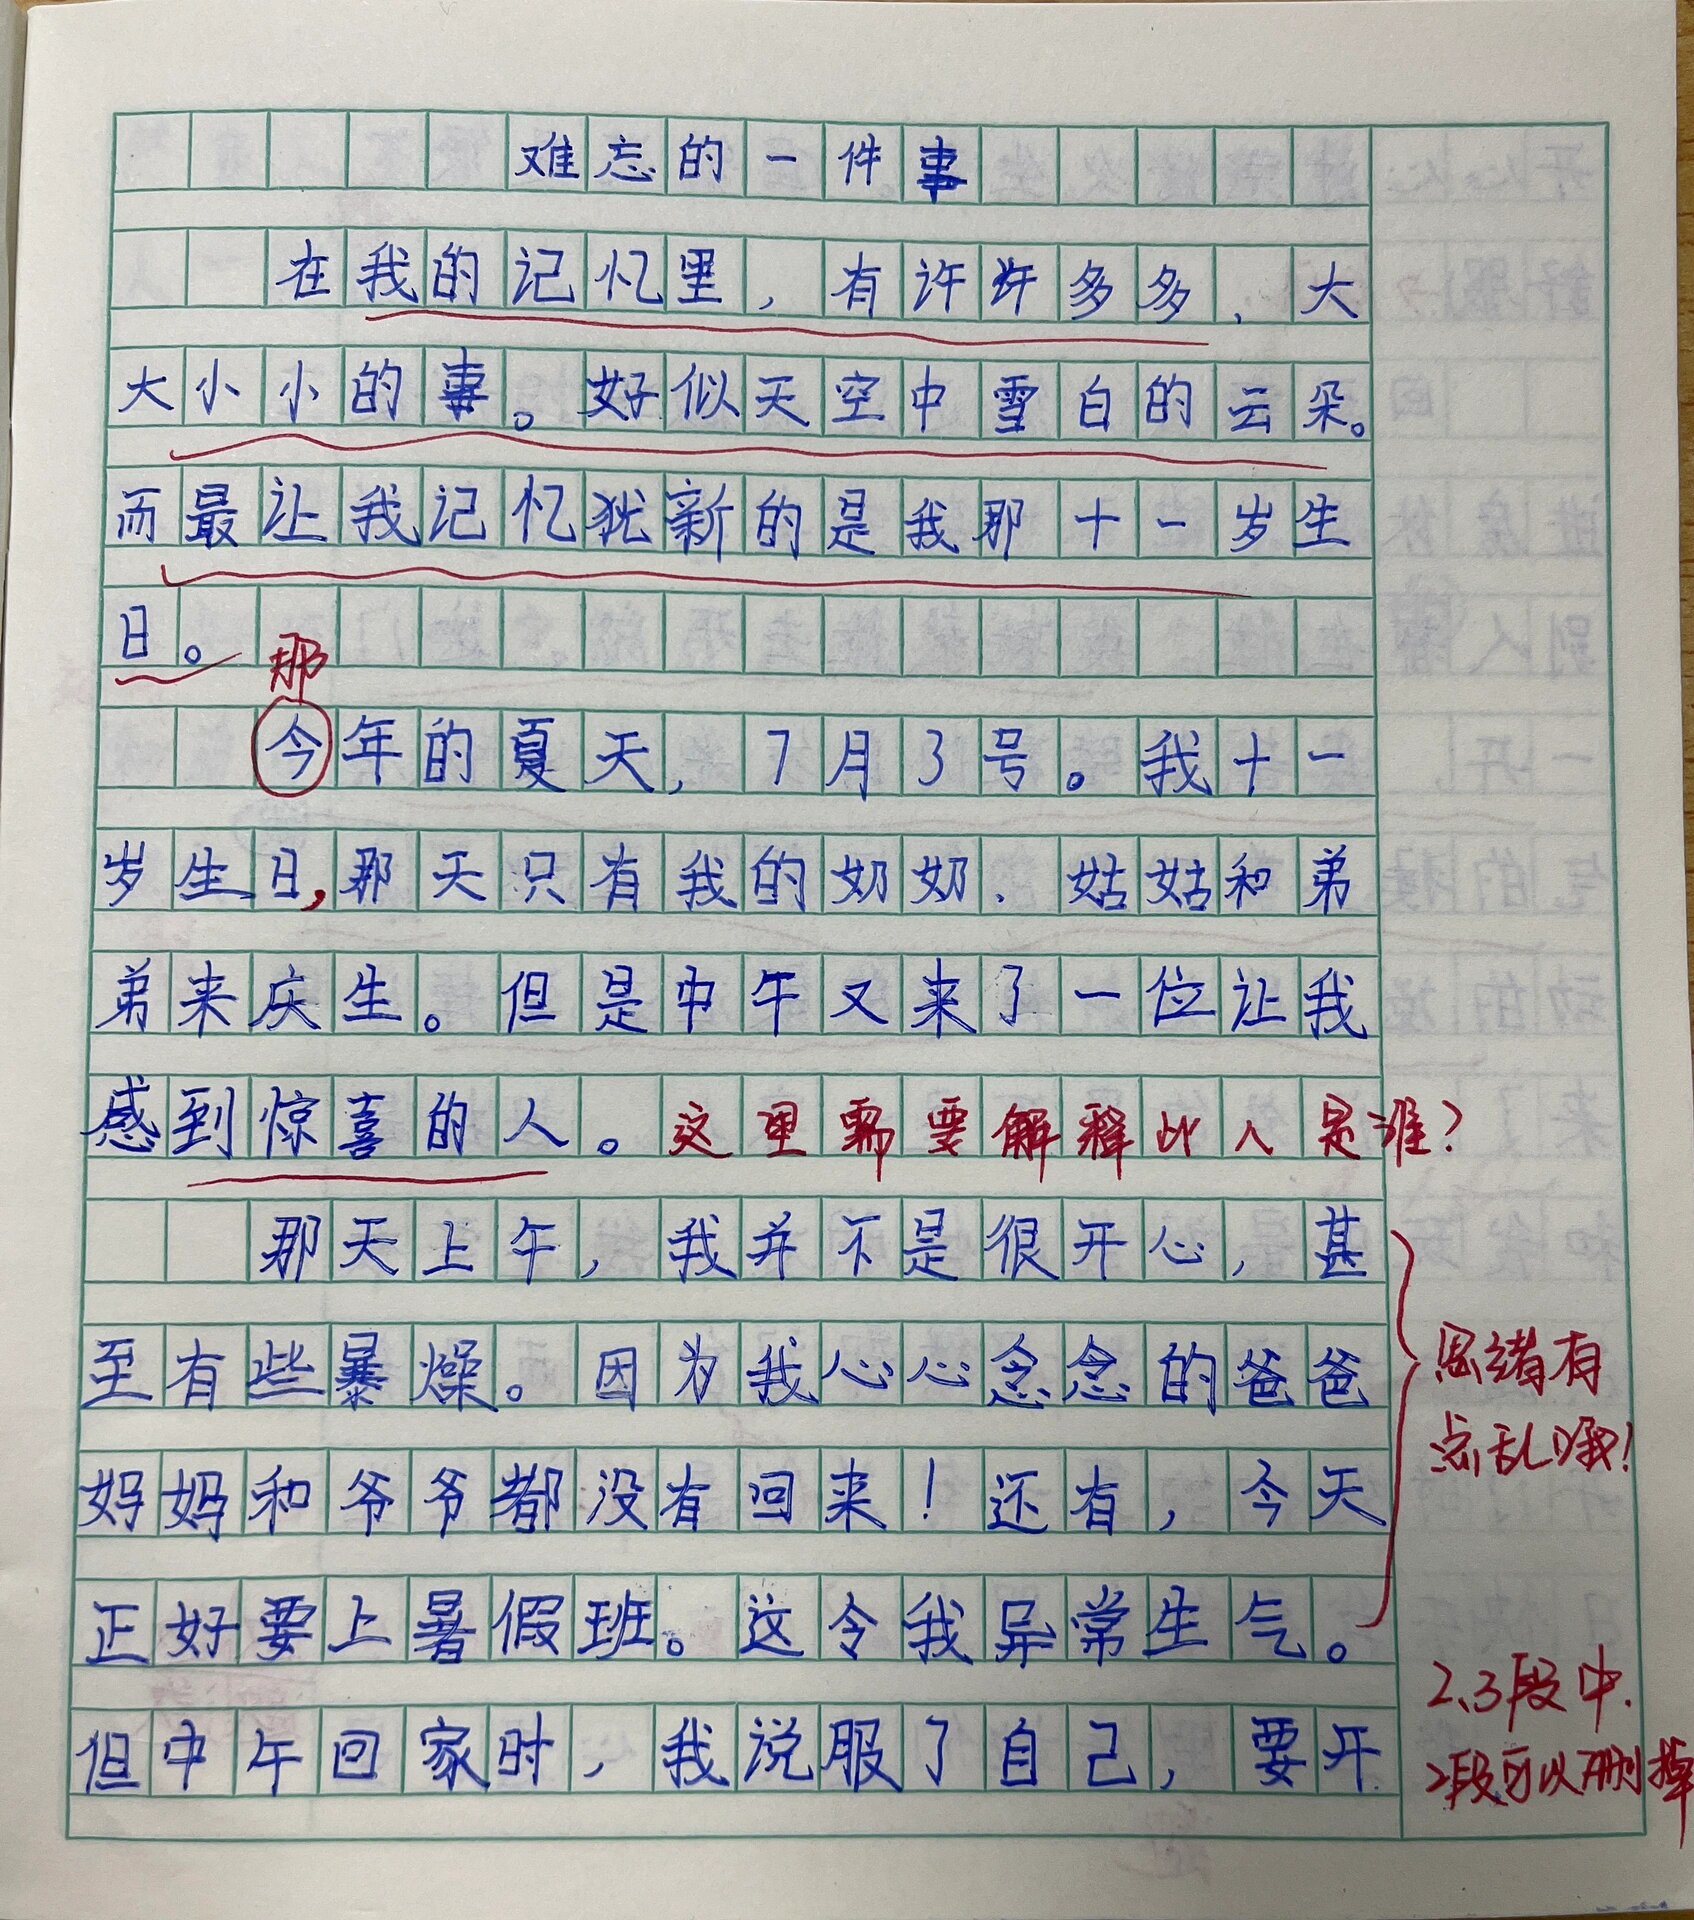 难忘的一件事
在我的记忆里，有许许多多、大
大小小的事。好似天空中雪白的云朵。
而最让我记忆犹新的是我那十一岁生
日。
那
今年的夏天，7月3号。我十一
岁生日，那天只有我的奶奶、姑姑和弟
弟来庆生。但是中午又来了一位让我
感到惊喜的人。这里需要解释此人是谁？
那天上午，我并不是很开心，甚
至有些暴燥。因为我心心念念的爸爸
妈妈和爷爷都没有回来！还有，今天
正好要上暑假班。这令我异常生气。
但中午回家时，我说服了自己，要开
思绪有
点乱哦！
2、3段中.
2段可以删掉